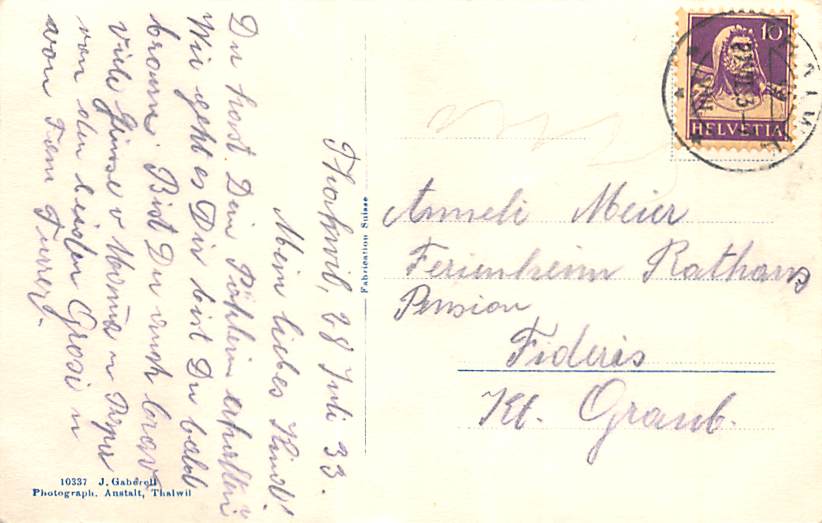 Thalwil, 28 Juli 33.
Mein liebes Kind!
Du hast Dein Päcklein erhalten
Wie geht es Dir bist Du bald
braun. Bist Du auch brav
viele Grüsse v Mama u Papa
von den beiden Grosi u
von Fam Furrer.
Fabrication Suisse
10337 J. Gaberell
Photograph. Anstalt, Thalwil
10
HELVETIA
Anneli Meier
Ferienheim Rathaus
Pension
Fideris
Kt. Graub.